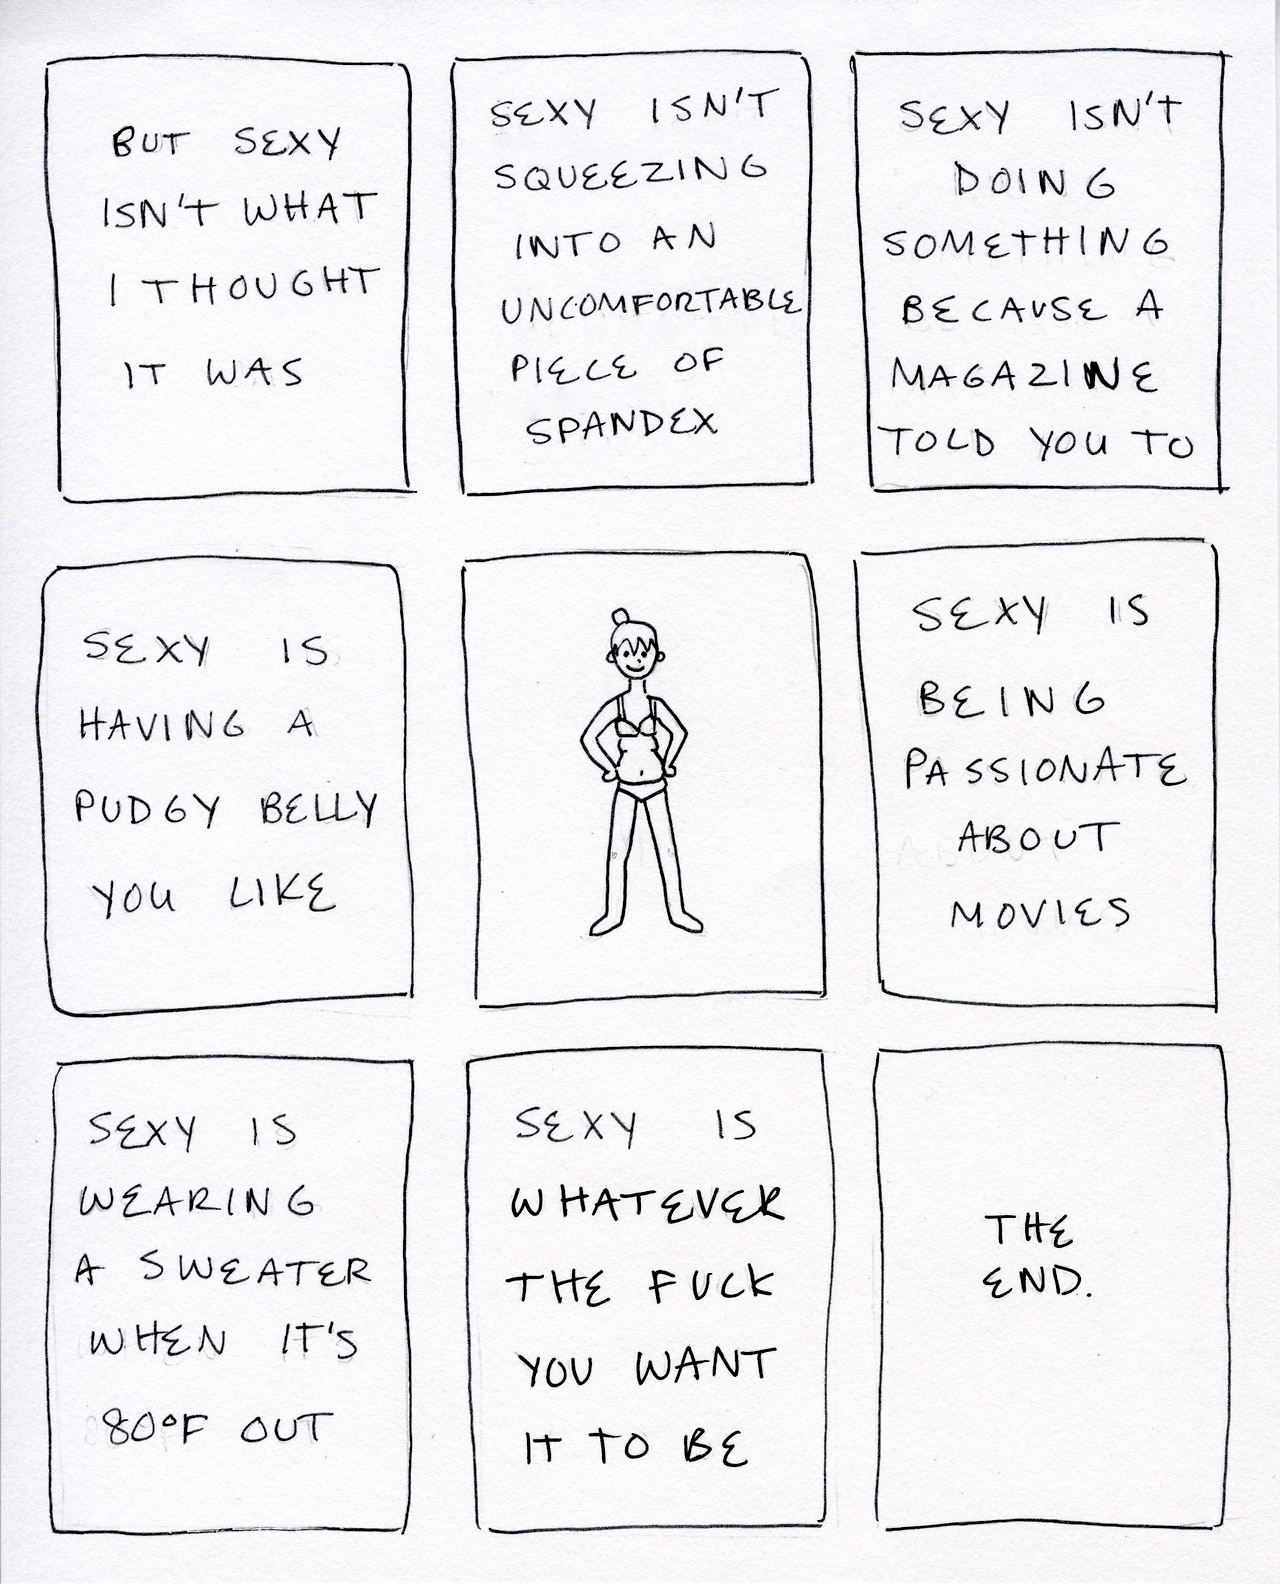 BUT SEXY
ISN'T WHAT
I THOUGHT
IT WAS
SEXY ISN'T
SQUEEZING
INTO AN
UNCOMFORTABLE
PIECE OF
SPANDEX
SEXY ISN'T
DOING
SOMETHING
BECAUSE A
MAGAZINE
TOLD YOU TO
SEXY IS
HAVING A
PUDGY BELLY
YOU LIKE
SEXY IS
BEING
PASSIONATE
ABOUT
MOVIES
SEXY IS
WEARING
A SWEATER
WHEN IT'S
80°F OUT
SEXY IS
WHATEVER
THE FUCK
YOU WANT
IT TO BE
THE
END.